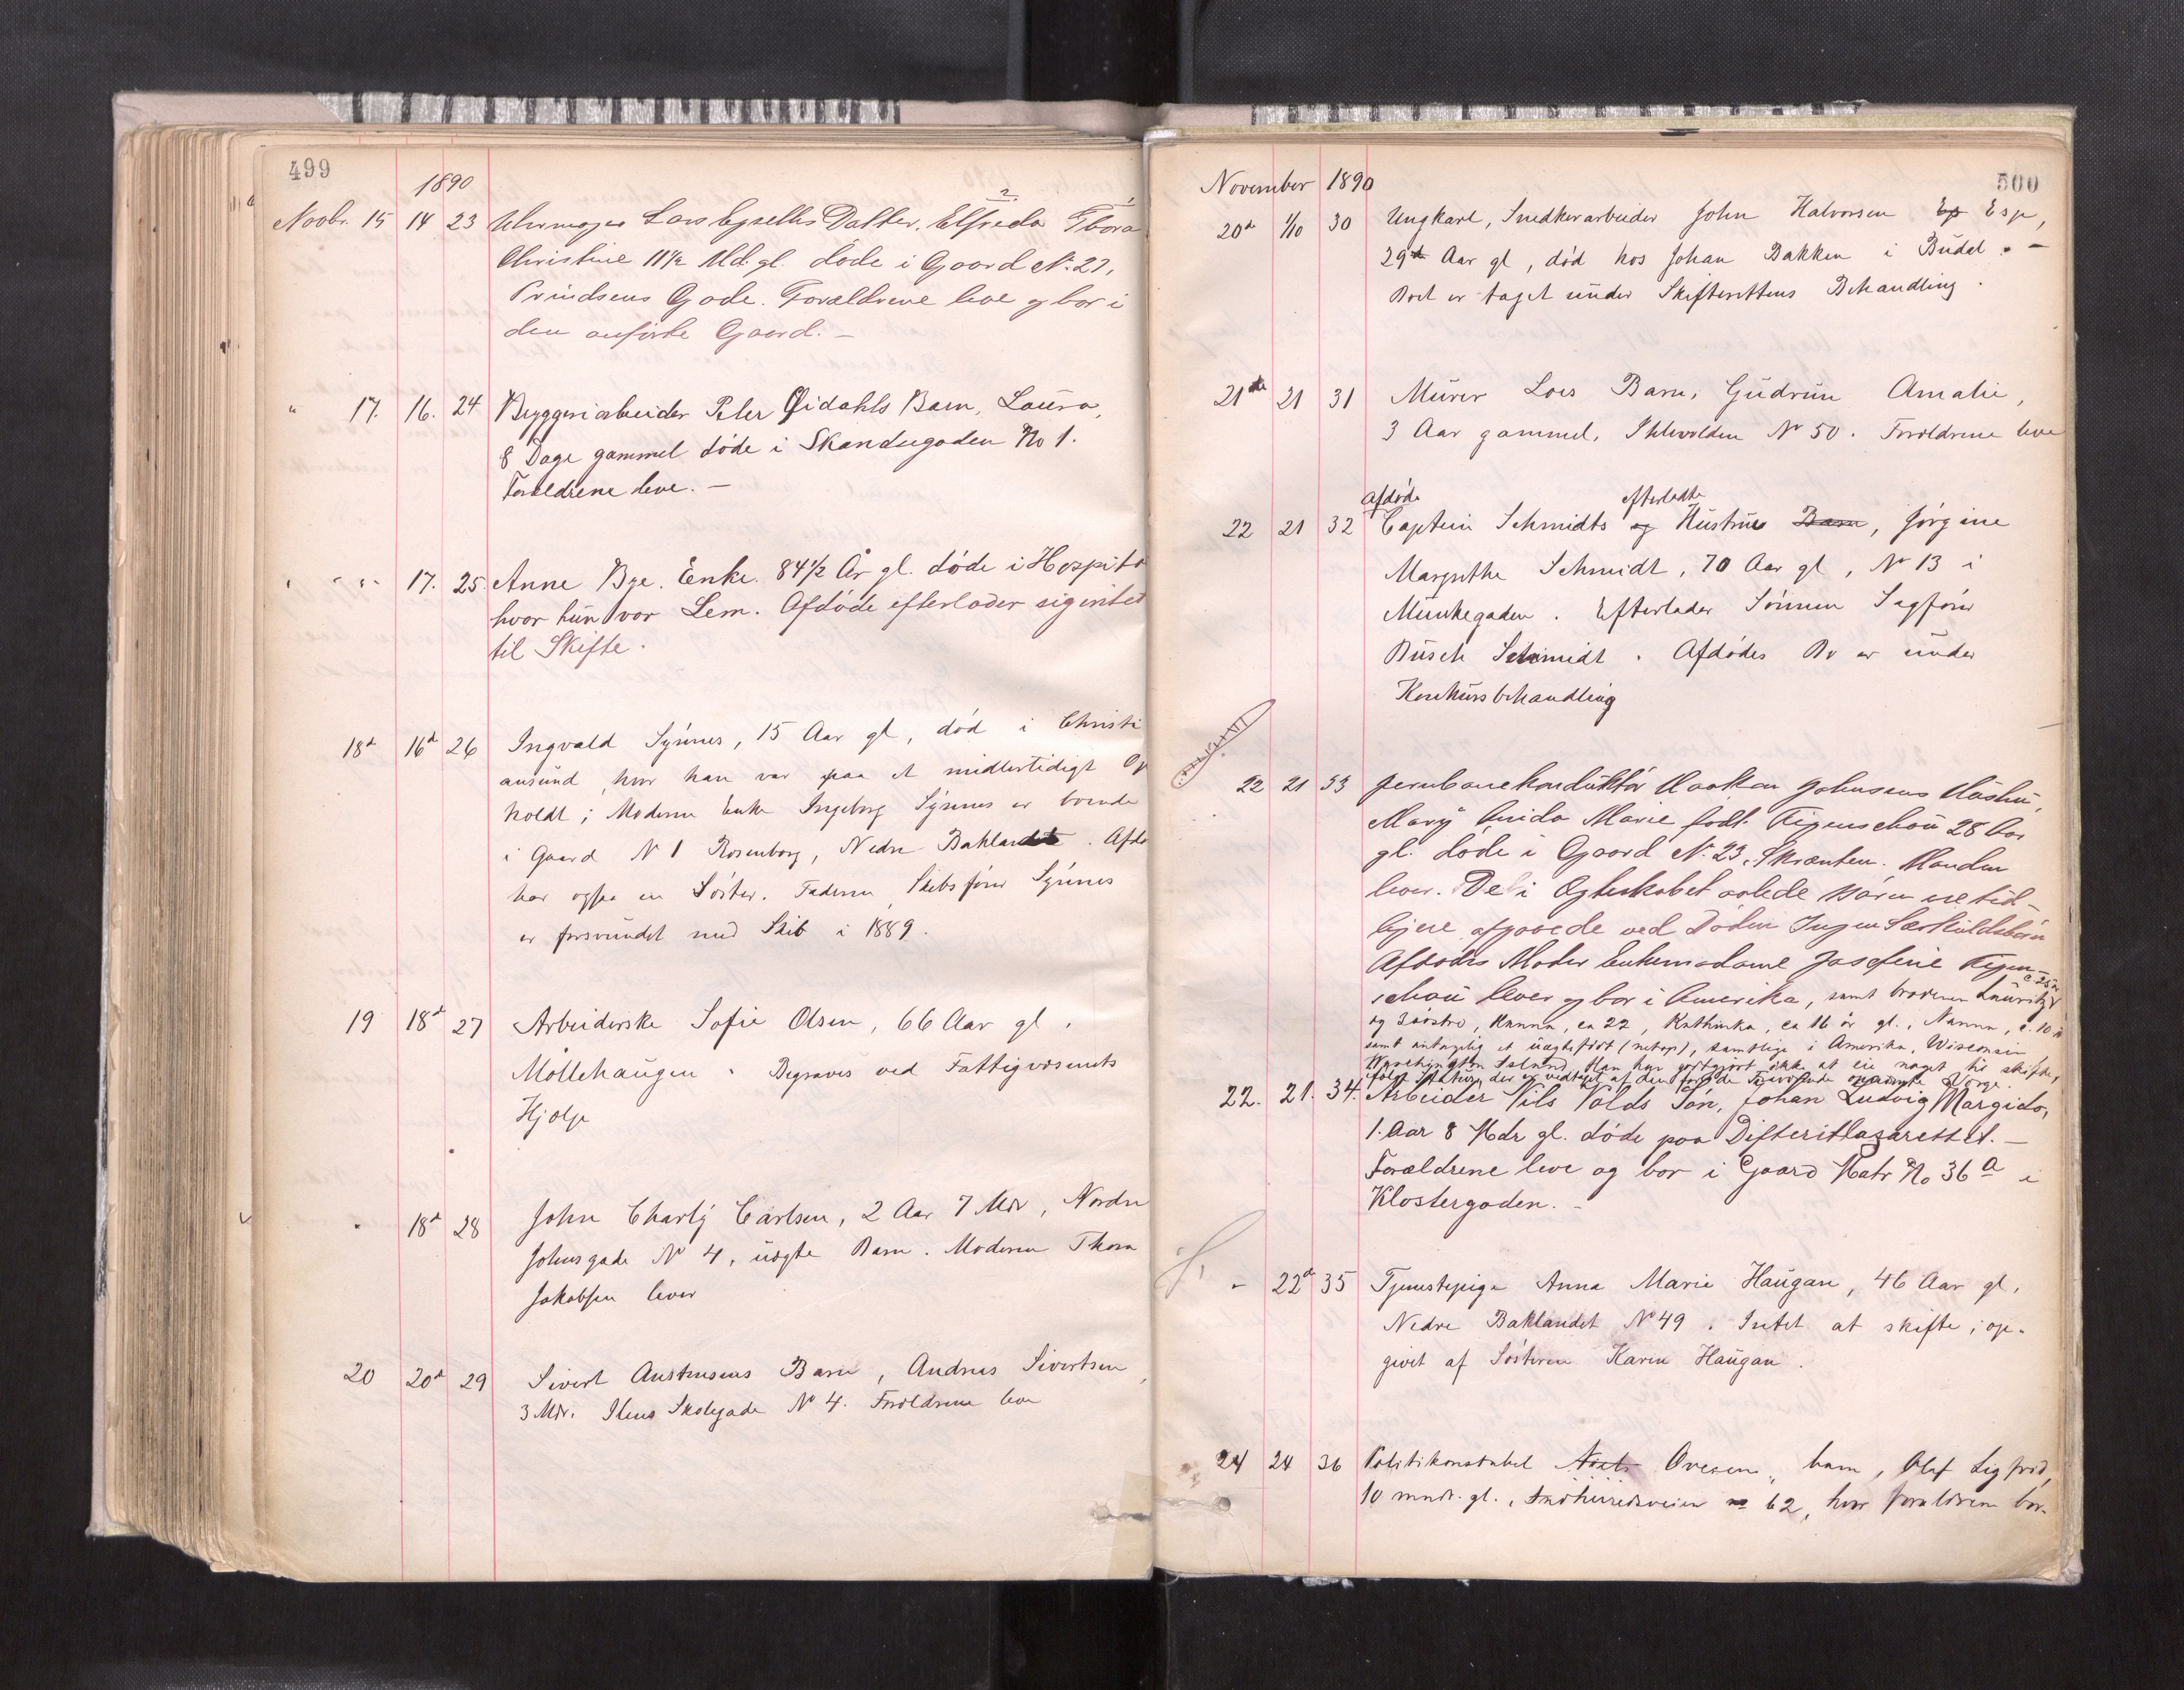 499
1890
Novbr. 15 14 23 Uhrmager Lars Datter, Elfreda Thora
Christine 11½ Md. gl. døde i Gaard No. 27,
Prindsens Gade. Forældrene leve og bor i
den anførte Gaard. —
" 17. 16. 24 Bryggeriarbeider Peter Øidahls Barn, Laura,
8 Dage gammel døde i Skansegaden No 1.
Forældrene leve. —
" " " 17. 25. Anne Bye. Enke. 84½ År gl. døde i Hospita
hvor hun var Lem. Afdøde efterlader sig intet
til Skifte.
18d 16d 26 Ingvald Synnes, 15 Aar gl, død i Christi
ansund, hvor han var paa et midlertidigt Op
holdt; Moderen Enke Ingeborg Synnes er boende
i Gaard N 1 Rosenborg, Nedre Baklandet. Afdø
har ogsaa en Søster. Faderen, Skibsfører Synnes
er forsvundet med Skib i 1889.
19 18d 27 Arbeiderske Sofie Olsen, 66 Aar gl,
Møllehaugen. Begraves ved Fattigvæsenets
Hjælp
" 18d 28 John Charly Carlsen, 2 Aar 7 Mdr, Nordre
Johnsgade No 4, uægte Barn. Moderen Thora
Jakobsen lever
20 20d 29 Sivert Barn, Andreas Sivertsen,
3 Mdr. Ilens Skolegade No 4. Forældrene leve
500
November 1890
20de 1/10 30 Ungkarl, Snedkerarbeider John Halvorsen Ep Esp,
29de Aar gl, død hos Johan Bakken i Budal. —
Boet er taget under Skifterettens Behandling.
21de 21 31 Murer Loes Barn, Gudrun Amalie,
3 Aar gammel, Ihlevolden No 50. Forældrene leve
Afdøde efterladte
22 21 32 Captein Schmidts og Hustrue Barn, Jørgine
Margrethe Schmidt, 70 Aar gl, No 13 i
Munkegaden. Efterlader Sønnen Sagfører
Busch Schmidt. Afdødes Bo er under
Konkursbehandling
22 21 33 Jernbanekonduktør Haakon Johnsens Hustru,
Mary Marie født Figenschou 28 Aar
gl. døde i Gaard No. 23, Skrænten. Manden
lever. De i Ægteskabet avlede Børn ere tid-
ligere afgaaede ved Døden Ingen Særkuldsbørn
Afdødes Moder Enkemadame Josefine Figen-
schou lever og bor i Amerika, samt broderen Lauritz c. 25 år
og 3 søstre, Hanna, ca 22, Kathinka, ca 16 år gl., Nanna, c. 10 år
samt antagelig et uægtefødt (netop), samtlige i Amerika, Wisconsin
Washington Island. Man har godtgjort ikke at eie noget til skifte,
22. 21. 34. Arbeider Nils Volds Søn, Johan Ludvig Margido,
1. Aar 8 Mdr gl. døde paa Difteritlazarettet. —
Forældrene leve og bor i Gaard Matr No 36a i
Klostergaden. —
" 22d 35 Tjenestepige Anna Marie Haugan, 46 Aar gl,
Nedre Baklandet No 49. Intet at skifte; op-
givet af Søsteren Karen Haugan.
24 24 36 Politikonstabel Ovesens barn, Olaf Sigfrid,
10 mndr. gl., Indherredsveien no 62, hvor forældrene bor.